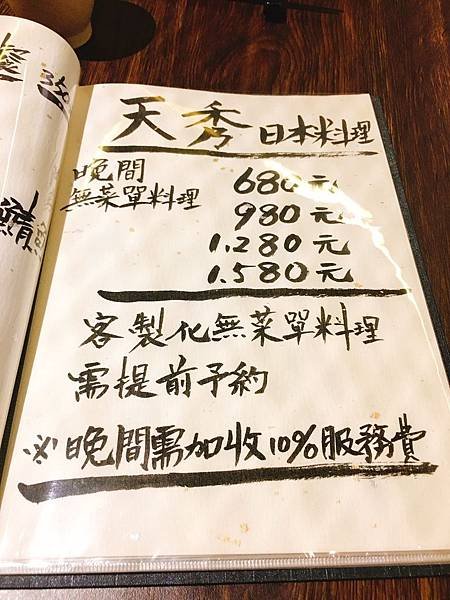 天秀 日本料理
晚間
無菜單料理
680元
980元
1.280元
1.580元
客製化無菜單料理
需提前予約
※晚間需加收10%服務費